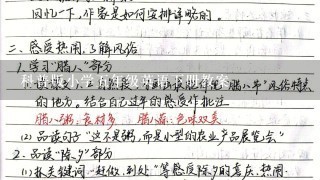 回忆一下,作家是如何安排详略的。
二、感受热闹,了解风俗
1. 学习“腊八”部分
科普版小学五年级英语下册教案
的地方。结合自己过年的感受作批注
腊八粥:食材多 腊八蒜:色味双美
(2) 品读句子“这不是粥,而是小型的农业产品展览会”
2. 品读“除夕”部分
(1) 抓关键词“赶做,到处”等感受除夕的喜庆、热闹.